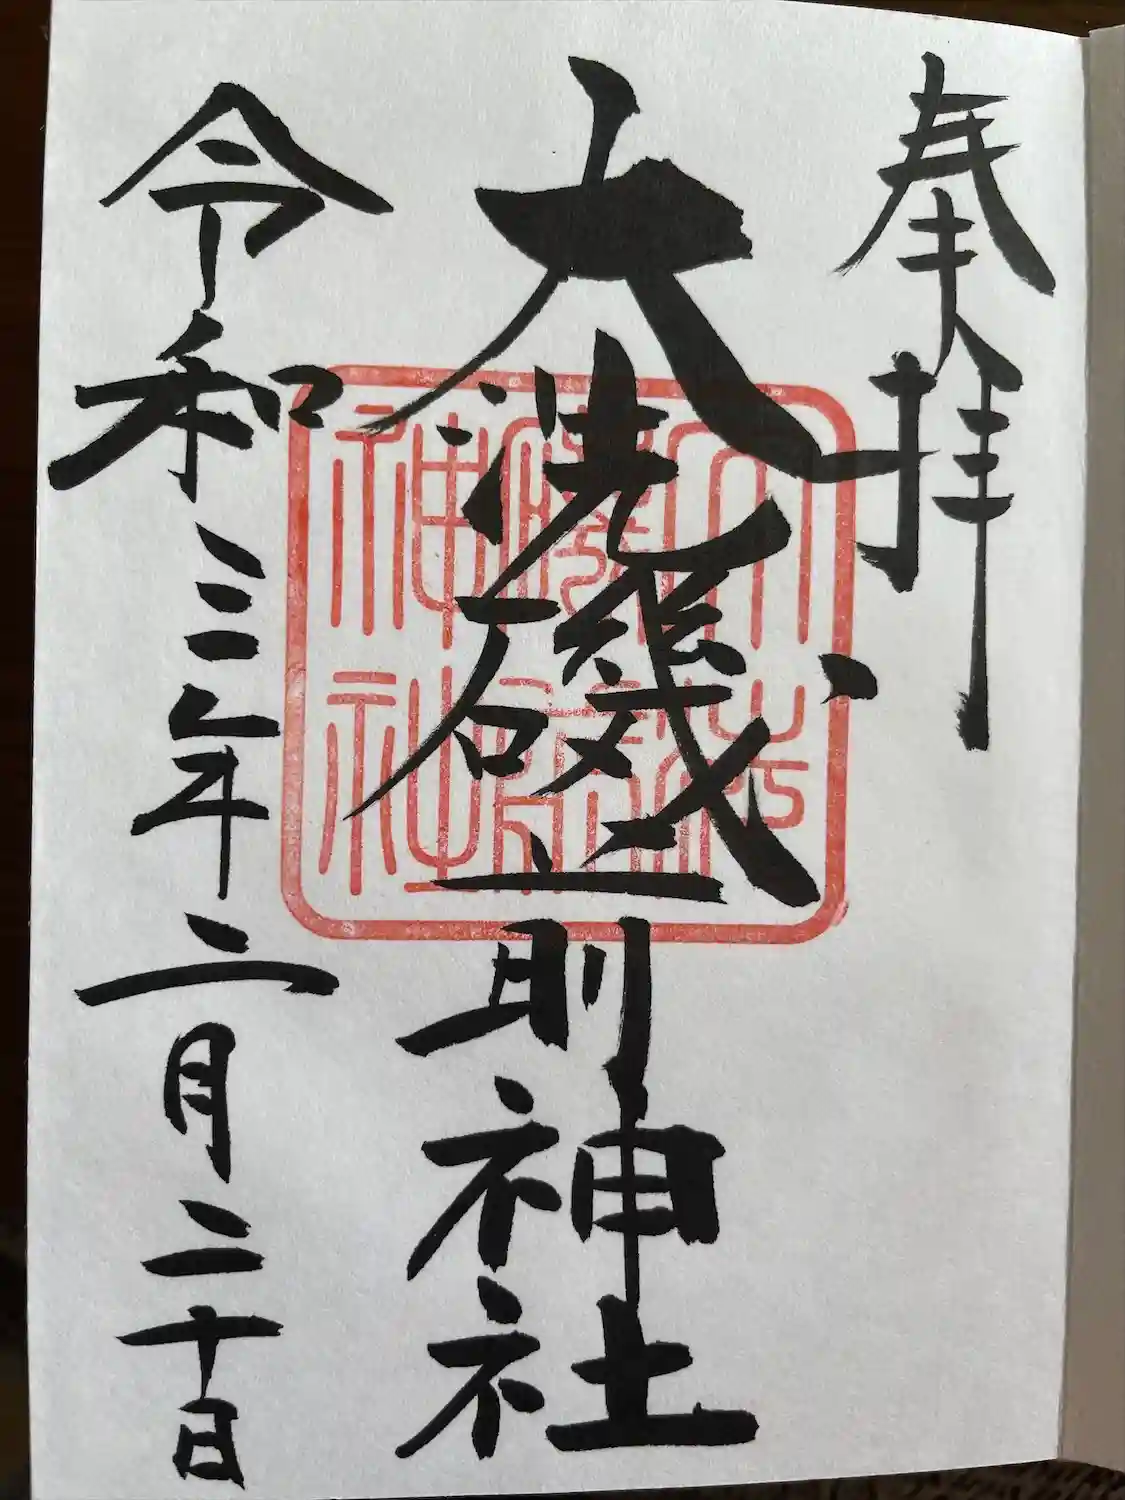 奉拝
大洗磯前神社
令和三年二月二十日
神社